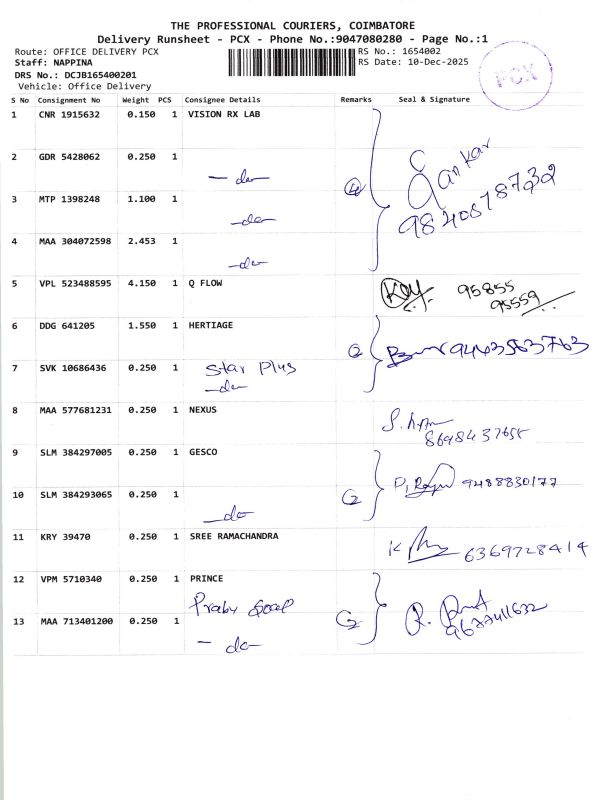 THE PROFESSIONAL COURIERS, COIMBATORE
Delivery Runsheet - PCX - Phone No.:9047080280 - Page No.:1
Route: OFFICE DELIVERY PCX
RS No.: 1654002
Staff: NAPPINA
RS Date: 10-Dec-2025
DRS No.: DCJB165400201
Vehicle: Office Delivery
PCX
S No Consignment No Weight PCS Consignee Details Remarks Seal & Signature
1 CNR 1915632 0.150 1 VISION RX LAB
2 GDR 5428062 0.250 1
- do -
3 MTP 1398248 1.100 1
- do -
4 MAA 304072598 2.453 1
- do -
5 VPL 523488595 4.150 1 Q FLOW 95855
95559
6 DDG 641205 1.550 1 HERTIAGE 9443563763
7 SVK 10686436 0.250 1 Star Plus
- do -
8 MAA 577681231 0.250 1 NEXUS
9 SLM 384297005 0.250 1 GESCO 9488830177
10 SLM 384293065 0.250 1
- do -
11 KRY 39470 0.250 1 SREE RAMACHANDRA 6369728414
12 VPM 5710340 0.250 1 PRINCE
13 MAA 713401200 0.250 1
- do -